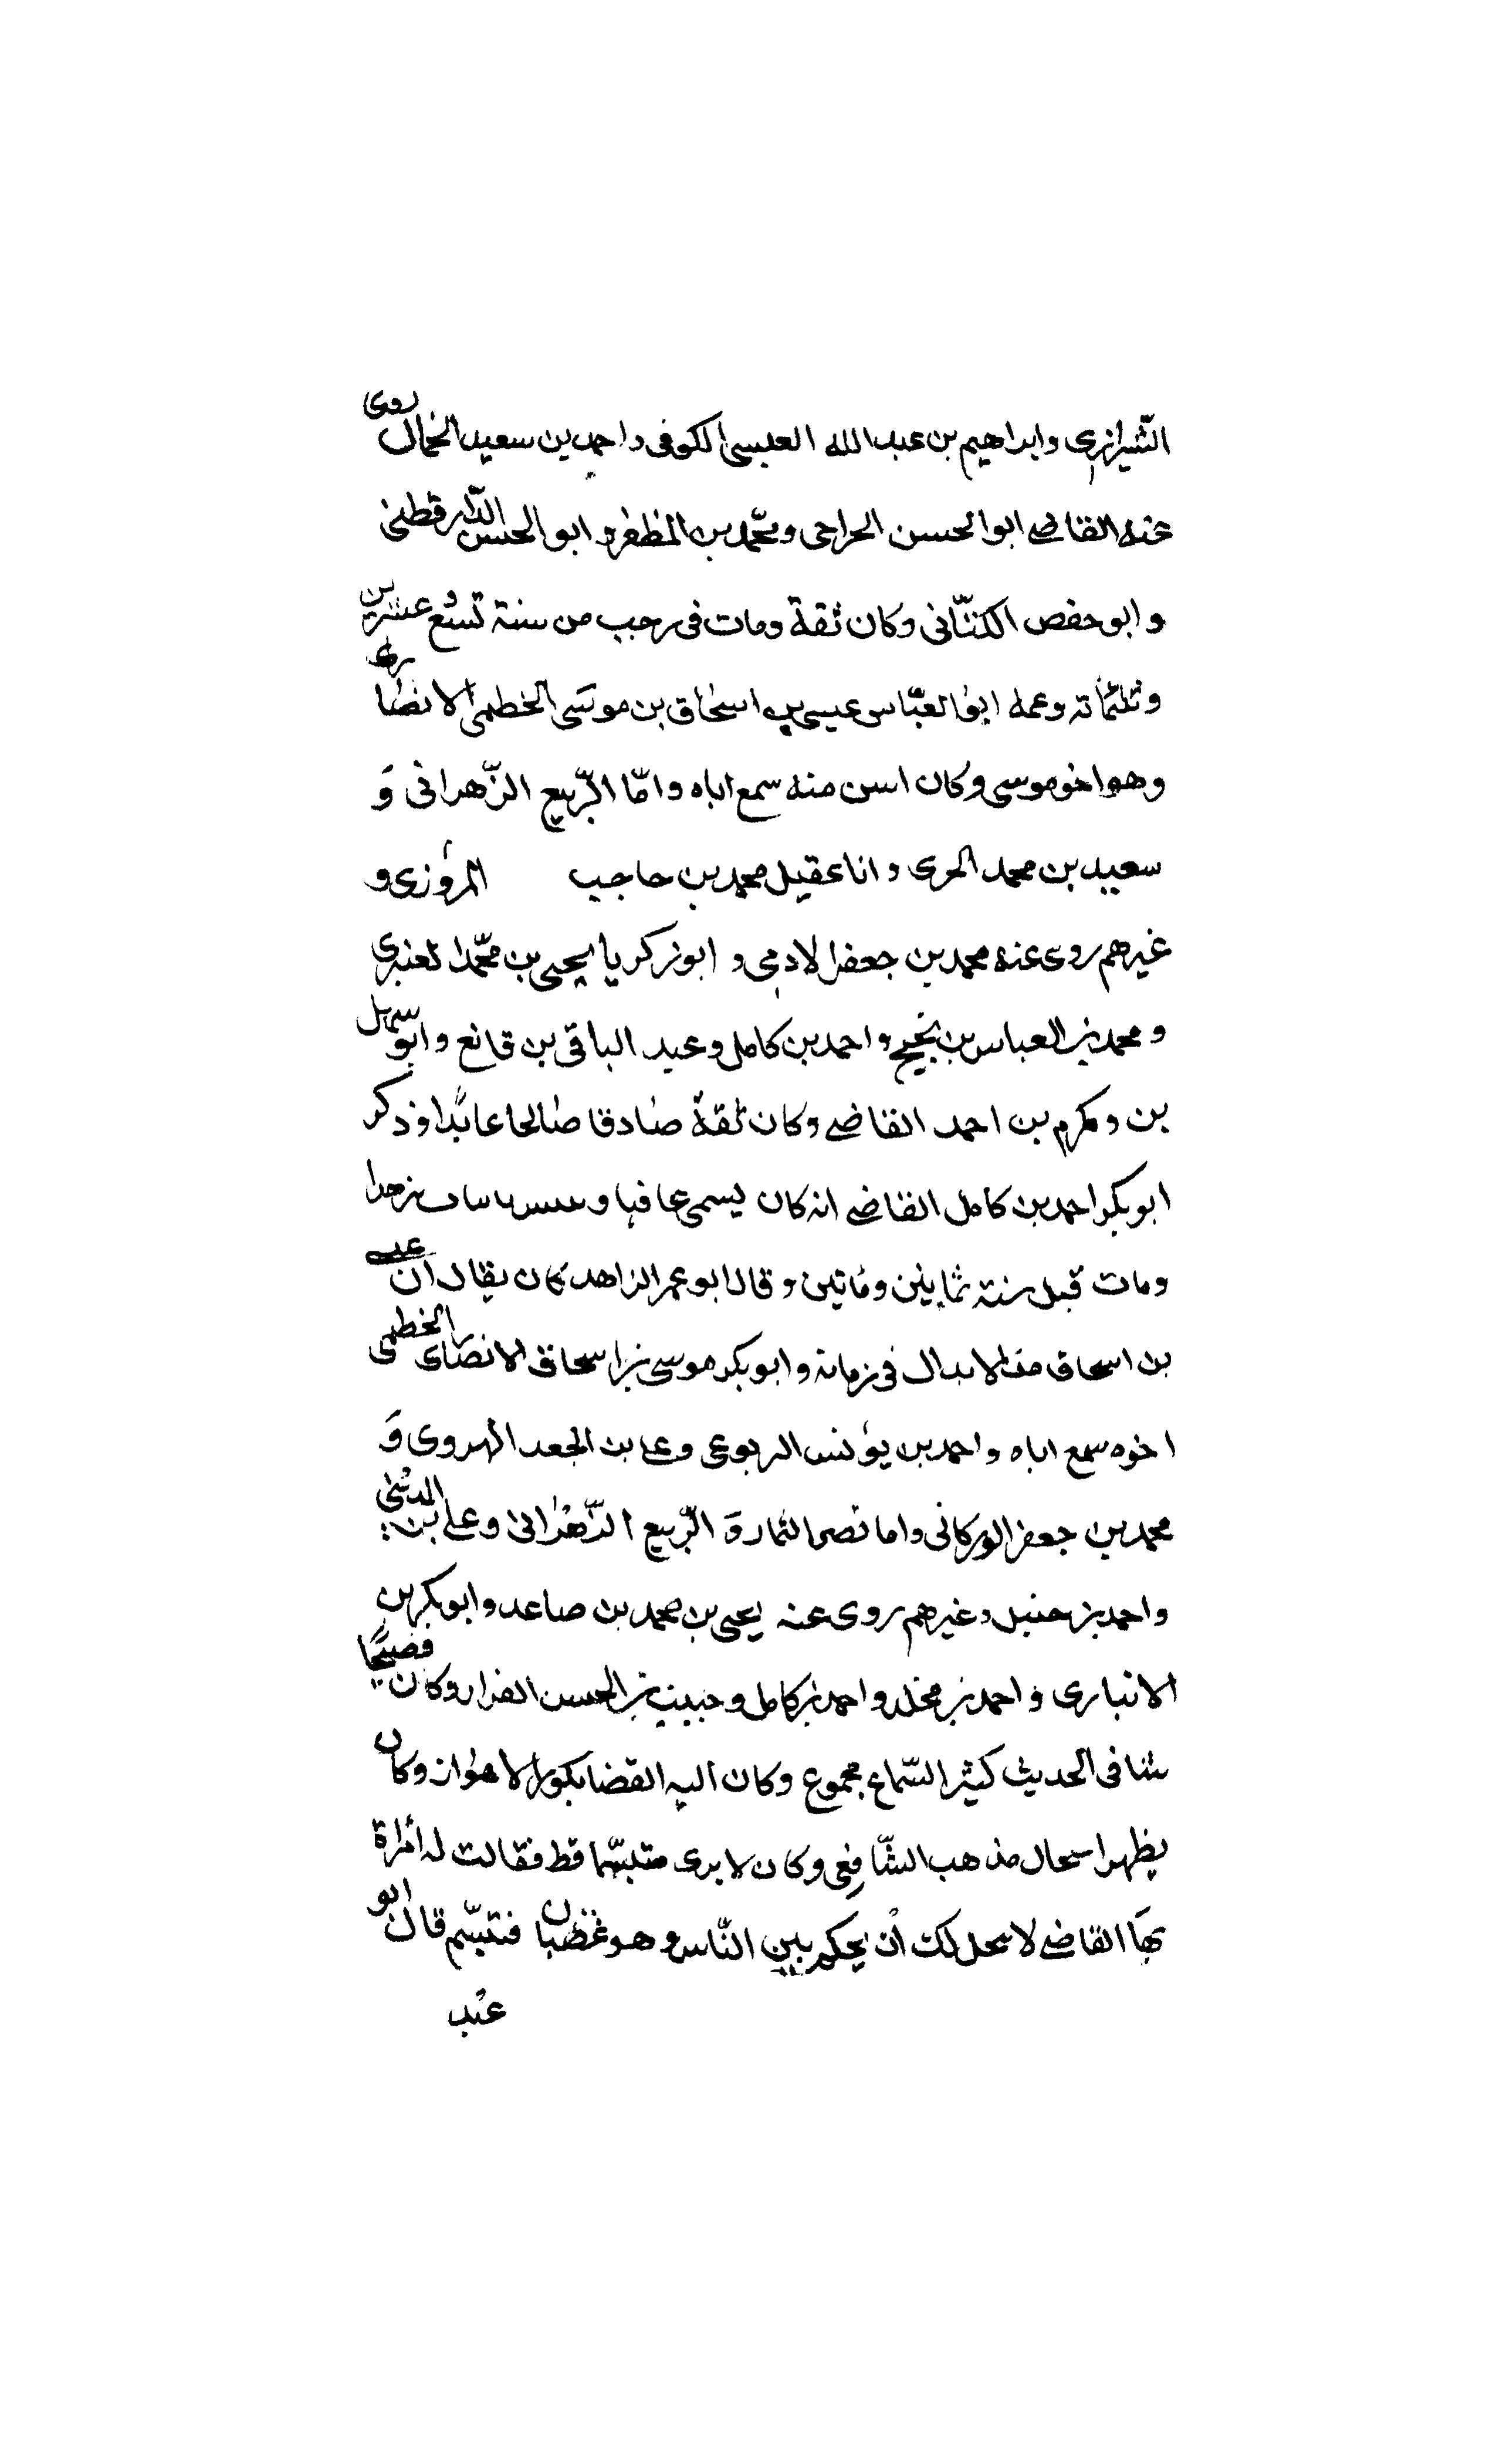 الشيرازي وابراهيم بن عبد الله العبسي الكوفى واحمد بن سعيد الحمال روى
عنه القاضي ابو الحسن الجراحى ومحمّد بن المظفر و ابو الحسن الدّارقطنى
و ابو حفص الكتّانى وكان ثقة ومات فى رجب من سنة تسع وعشرين
وثلثمائة وعمه ابو العبّاس عيسى بن اسحاق بن موسى الخطمى الانصارى
وهو اخو موسى وكان اسن منه سمع اباه و امّا الرّبيع الزّهرانى وَ
سعيد بن محمد الجرمى و انا عقيل محمد بن حاجب المروزى و
غيرهم روى عنه محمد بن جعفر الادمى و ابو زكريا يحيى بن محمّد العنبرى
و محمد بن العباس بن نجيح و احمد بن كامل و عبد الباقى بن قانع و ابو سهل
بن و مكرم بن احمد القاضي وكان ثقة صادقا صالحا عابدا وذكر
ابو بكر احمد بن كامل القاضي انه كان يسمى
ومات قبل سنة ثمانين ومائتين وقال ابو عمر الزاهد كان يقال ان عيسى
بن اسحاق من الابدال فى زمانه و ابو بكر موسى بن اسحاق الانصارى الخطمى
اخوه سمع اباه و احمد بن يونس اليربوعى وعلي بن الجعد الهروى وَ
محمد بن جعفر الوركانى واما نصر التمار وَ الرّبيع الزّهْرانى وعلي بن المدينى
و احمد بن حنبل وغيرهم روى عنه يحيى بن محمد بن صاعد و ابو بكر بن
الانبارى و احمد بن مخلد و احمد بن كامل و حبيب بن الحسن القزاز وكان فصيحًا
ثبتا فى الحديث كثير السّماع مجموع وكان اليه القضا بكور الاهواز وكان
يظهر انتحال مذهب الشّافعى وكان لا يرى متبسّما قط فقالت له امراة
ايها القاضي لا يحل لك أن يحكم بين النّاس و هو غضبان فتبسّم قال ابو
عبد